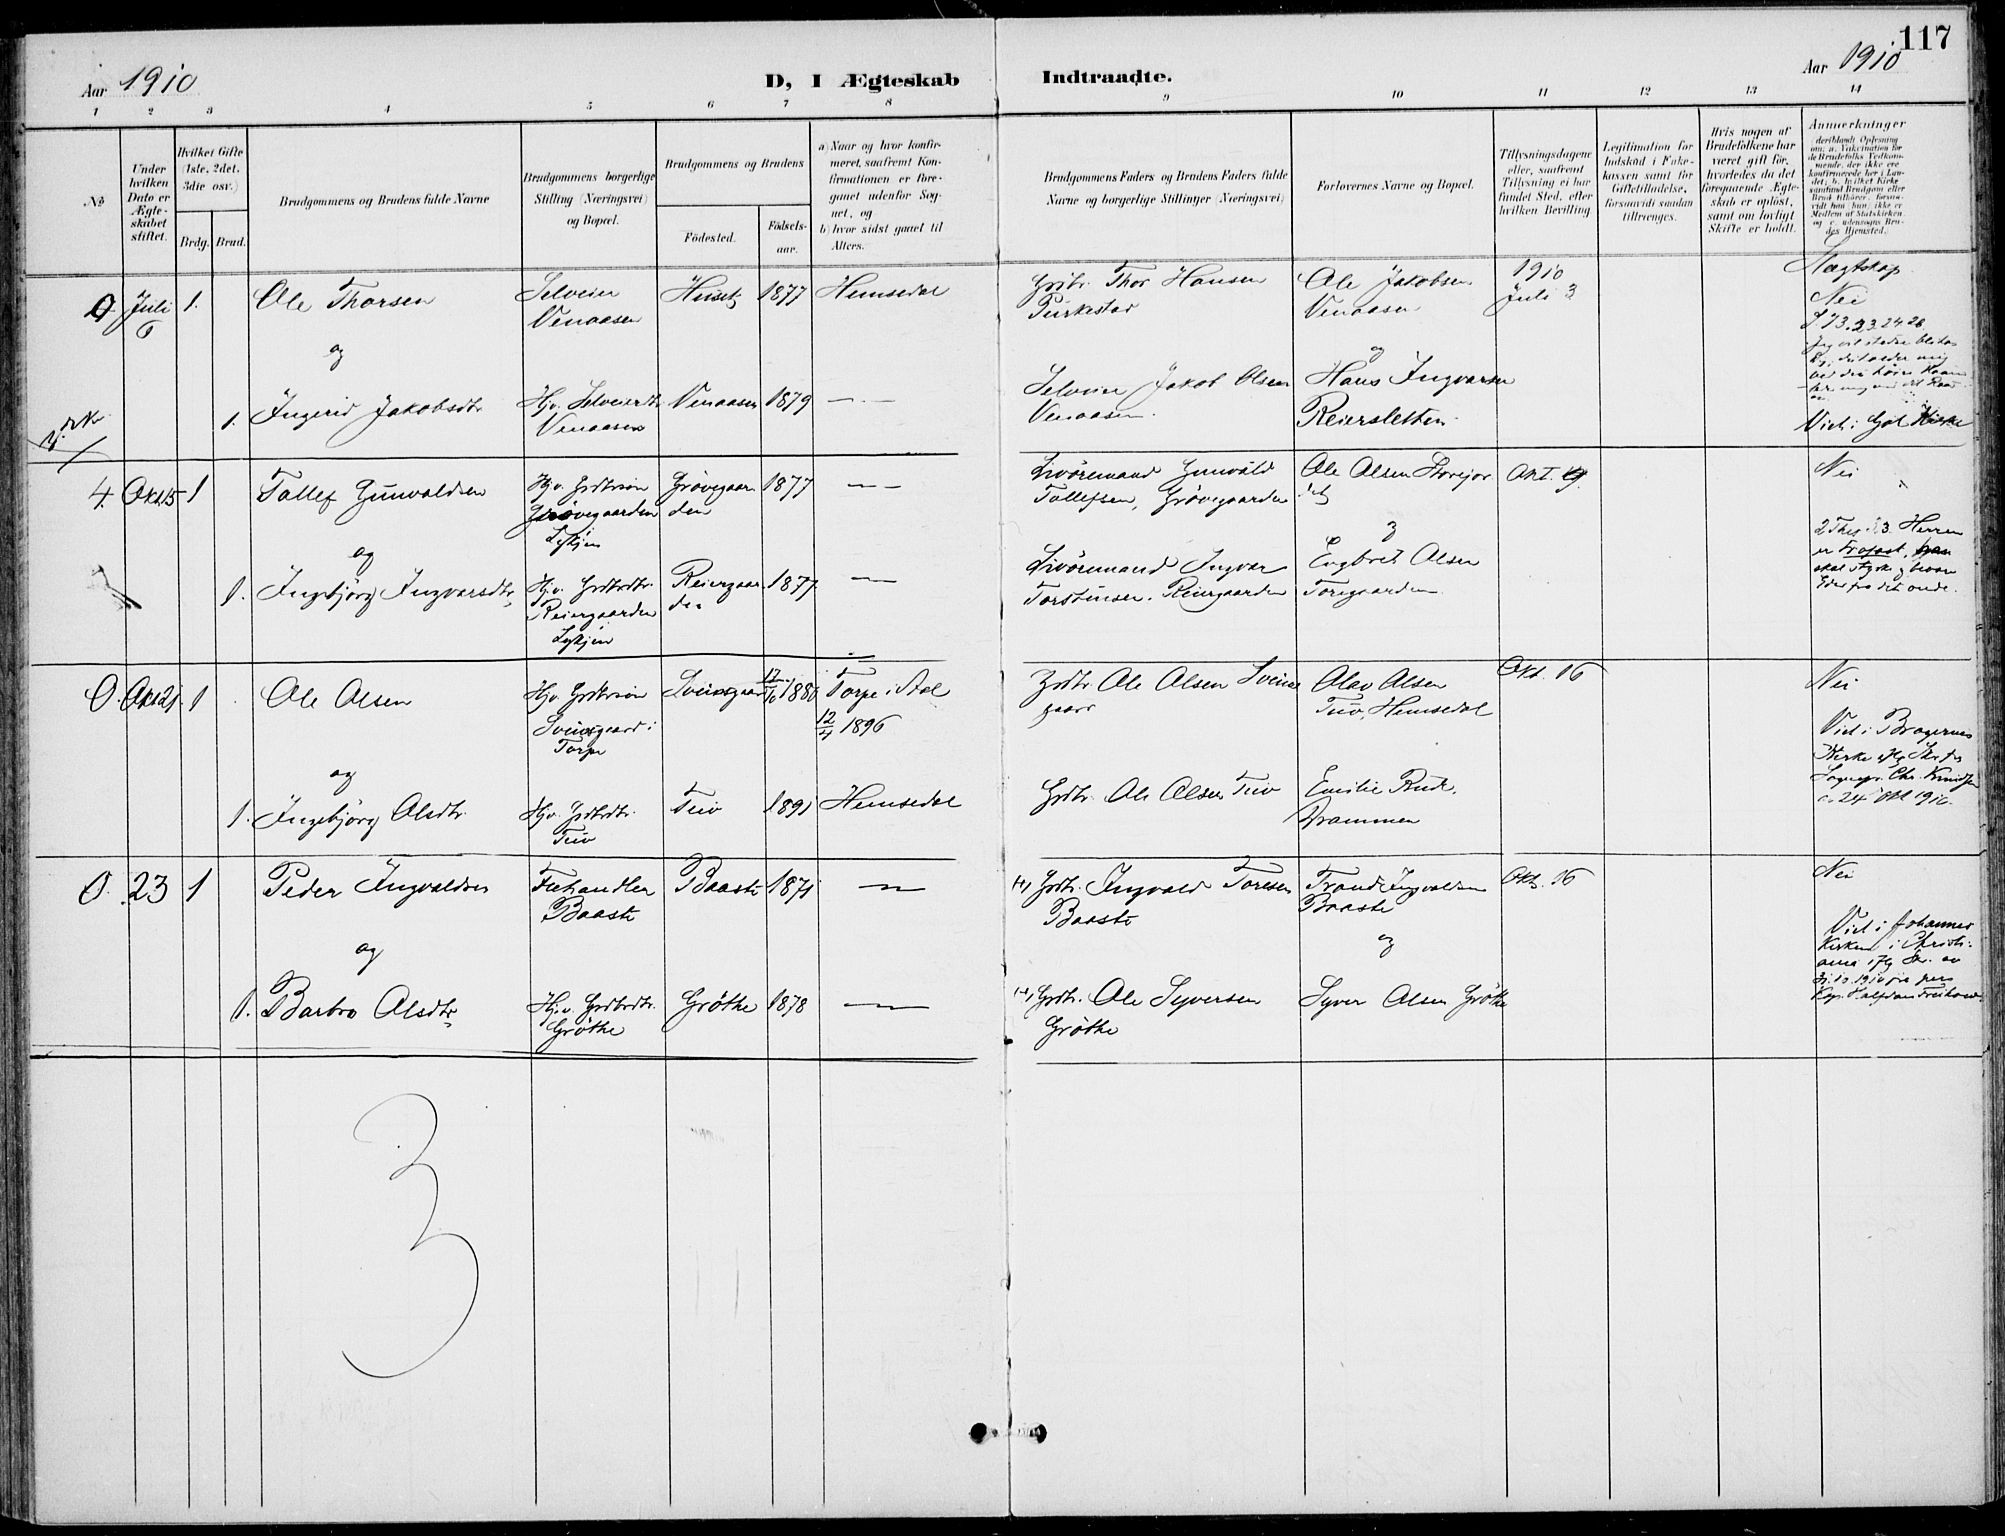 117
Aar 1910
D, I Ægteskab Indtraadte.
Aar 1910
1 2 3 4 5 6 7 8 9 10 11 12 13 14
No.
Under hvilken Dato er Ægteskabet stiftet.
Hvilket Gifte (1ste, 2det, 3die osv.)
Brdg. Brud.
Brudgommens og Brudens fulde Navne
Brudgommens borgerlige Stilling (Næringsvei) og Bopæl.
Brudgommens og Brudens
Födested. Födselsaar.
a) Naar og hvor konfirmeret, saafremt Konfirmationen er foregaaet udenfor Sognet, og
b) hvor sidst gaaet til Alters.
Brudgommens Faders og Brudens Faders fulde Navne og borgerlige Stillinger (Næringsvei)
Forlovernes Navne og Bopæl.
Tillysningsdagene eller, saafremt Tillysning ei har fundet Sted, efter hvilken Bevilling.
Legitimation for Indskud i Enkekassen samt for Giftetilladelse, forsaavidt saadan tiltrænges.
Hvis nogen af Brudefolkene har været gift för, hvorledes da det foregaaende Ægteskab er oplöst, samt om lovligt Skifte er holdt.
Anmerkninger
0 Juli 6 1. Ole Thorsen
Selveier Venaasen
Huset 1877 Hemsedal
Grdbr. Thor Hansen
Purkestad
Ole Jakobsen
Venaasen
1910
Juli 3
Slægtskap
Nei
og
1. Ingerid Jakobsdtr
Hjv. Selveierdtr.
Venaasen
Venaasen 1879 —
Selveier Jakob Olsen
Venaasen.
og
Hans Ingvarsen
Reiersletten.
Viet i Gol Kirke
4. Okt. 15 1 Tollef Gunvaldsen
Hjv. Grdbrsön
Grövegaarden
Lykjen
Grövegaarden 1877 —
Livöremand Gunvald
Tollefsen, Grövegaarden
Ole Olsen Storejordet
Okt. 9.
Nei
og
1. Ingebjörg Ingvarsdtr.
Hjv. Grdbrdtr.
Reiergaarden
Lykjen
Reiergaarden 1877. —
Livöremand Ingvar
Torstensen. Reiergaarden
Engbret Olsen
Toregaarden
2 Thes. 3.3. Herren
er trofast,
skal styrke og bevare
Eder fra det onde.
0. Okt 21. 1 Ole Olsen
Hjv. Grdbrsön
Sveinsgaard i
Torpe
Sveinsgaard 17/10 1880 Torpe i Aal
12/4 1896
Grdbr. Ole Olsen Sveinsgaard
Olav Olsen
Tuv, Hemsedal
Okt. 16
Nei
Viet i Bragernes
Kirke
Sognepr. Chr. Knudsen
24 Okt 1910.
og
1. Ingebjörg Olsdtr.
Hjv. Grdbrdtr.
Tuv
Tuv 1891 Hemsedal
Grdbr. Ole Olsen Tuv
Emilie Rud.
Drammen
0. 23 1 Peder Ingvaldsen
Fehandler
Baaste
Baaste 1871 —
Grdbr. Ingvald Toresen
Baaste
Trond Ingvaldsen
Baaste
Okt. 16
Nei
Viet i Johannes
Kirken i Christiania
og
1. Barbro Olsdtr
Hjv. Grdbrdtr.
Gröthe
Gröthe 1878 —
Grdbr. Ole Syversen
Gröthe
og
Syver Olsen Gröthe
3